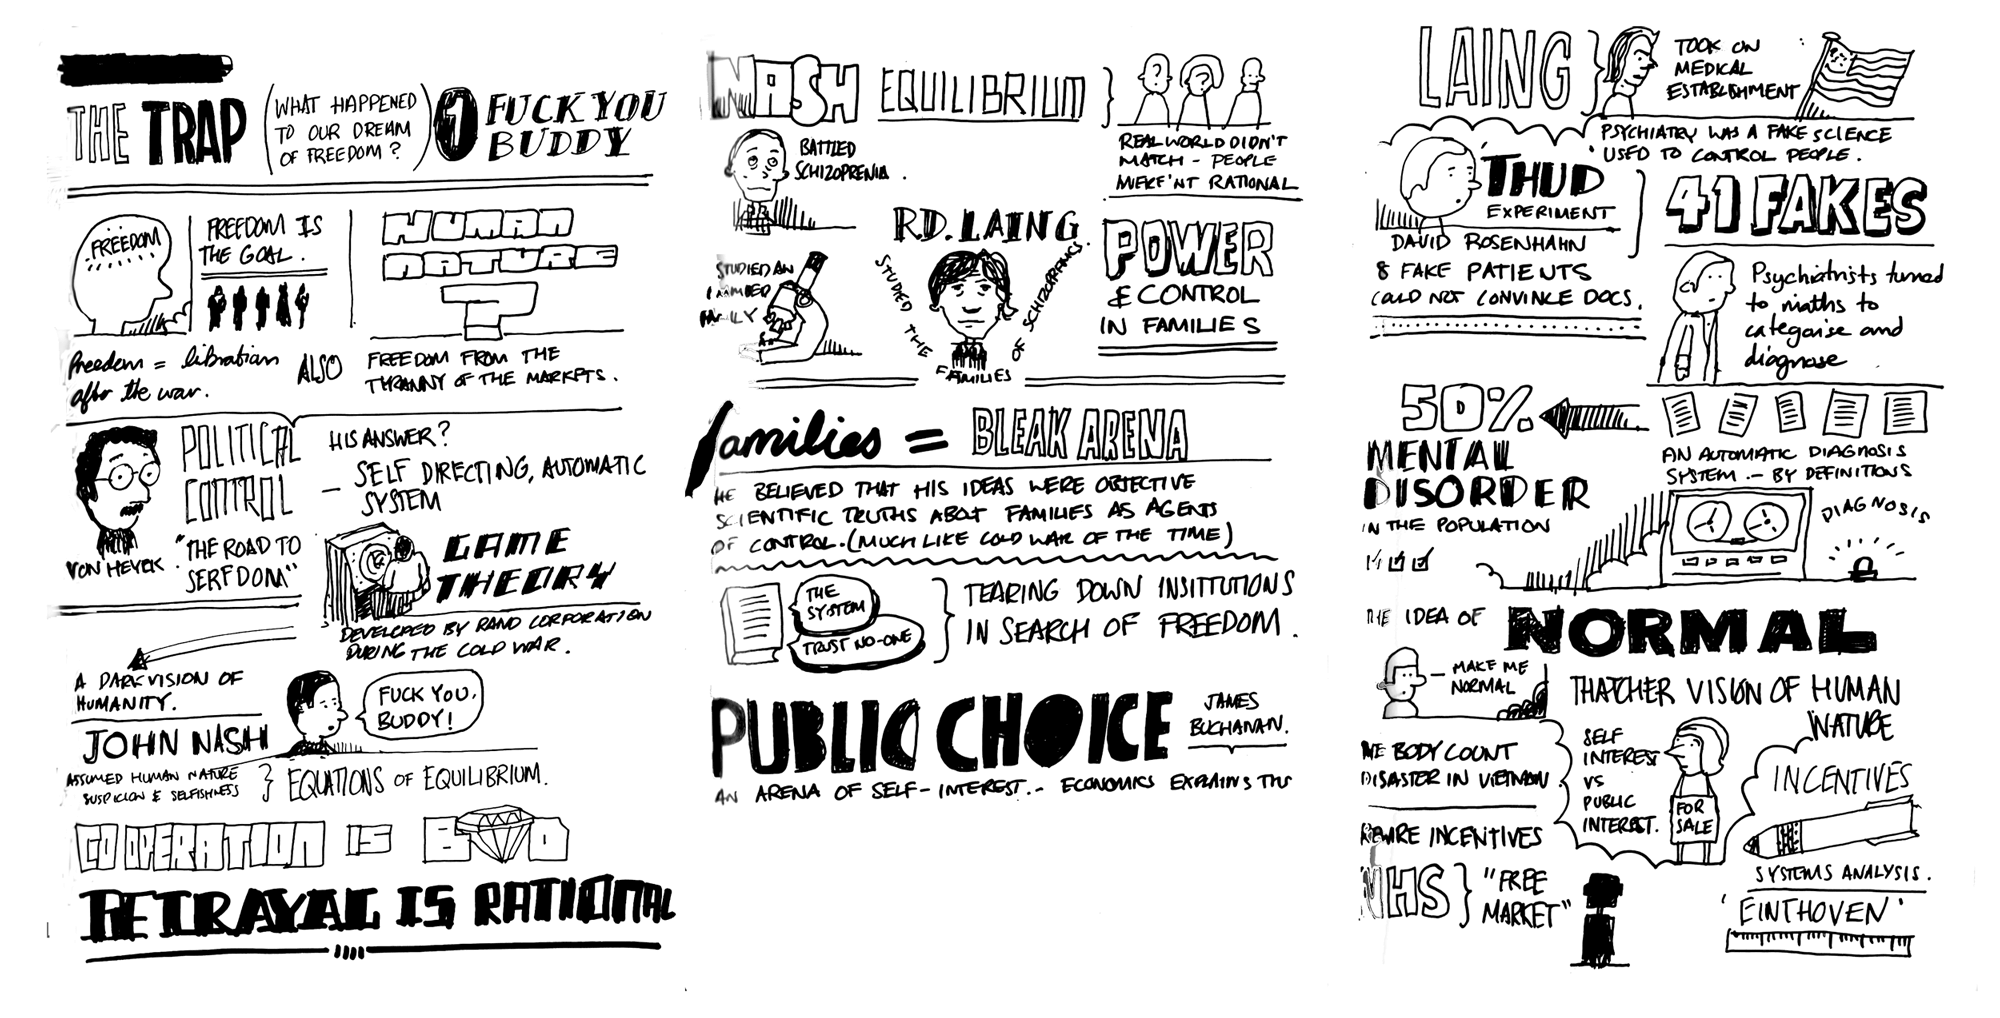 THE TRAP
(WHAT HAPPENED
TO OUR DREAM
OF FREEDOM?)
1 FUCK YOU
BUDDY
FREEDOM
FREEDOM IS
THE GOAL.
HUMAN
NATURE
?
freedom = libratian
after the war.
ALSO
FREEDOM FROM THE
TYRANNY OF THE MARKETS.
VON HEYEK
POLITICAL
CONTROL
"THE ROAD TO
SERFDOM"
HIS ANSWER?
— SELF DIRECTING, AUTOMATIC
SYSTEM
GAME
THEORY
DEVELOPED BY RAND CORPORATION
DURING THE COLD WAR.
A DARK VISION OF
HUMANITY.
JOHN NASH
FUCK YOU,
BUDDY!
ASSUMED HUMAN NATURE
SUSPICION & SELFISHNESS
} EQUATIONS OF EQUILIBRIUM.
COOPERATION IS BAD
BETRAYAL IS RATIONAL
NASH EQUILIBRIUM }
BATTLED
SCHIZOPRENIA.
? ?
REAL WORLD DIDN'T
MATCH - PEOPLE
WERE'NT RATIONAL
STUDIED AN
FAMILY
R.D. LAING
STUDIED THE FAMILIES OF SCHIZOPRANKS.
POWER
& CONTROL
IN FAMILIES
families = BLEAK ARENA
HE BELIEVED THAT HIS IDEAS WERE OBJECTIVE
SCIENTIFIC TRUTHS ABOUT FAMILIES AS AGENTS
OF CONTROL. (MUCH LIKE COLD WAR OF THE TIME)
THE
SYSTEM
TRUST NO-ONE
} TEARING DOWN INSITTUTIONS
IN SEARCH OF FREEDOM.
PUBLIC CHOICE
JAMES
BUCHANAN.
AN ARENA OF SELF-INTEREST.- ECONOMICS EXPLAINS THIS
LAING }
TOOK ON
MEDICAL
ESTABLISHMENT
PSYCHIATRY WAS A FAKE SCIENCE
USED TO CONTROL PEOPLE.
THUD
EXPERIMENT
DAVID ROSENHAHN
8 FAKE PATIENTS
COULD NOT CONVINCE DOCS.
41 FAKES
Psychiatrists turned
to maths to
categorise and
diagnose
50%
MENTAL
DISORDER
IN THE POPULATION
AN AUTOMATIC DIAGNOSIS
SYSTEM.- BY DEFINITIONS
DIAGNOSIS
THE IDEA OF NORMAL
- MAKE ME
NORMAL
THATCHER VISION OF HUMAN
NATURE
THE BODY COUNT
DISASTER IN VIETNAM.
SELF
INTEREST
VS
PUBLIC
INTEREST.
FOR
SALE
INCENTIVES
REWIRE INCENTIVES
NHS } "FREE
MARKET"
SYSTEMS ANALYSIS.
'EINTHOVEN'